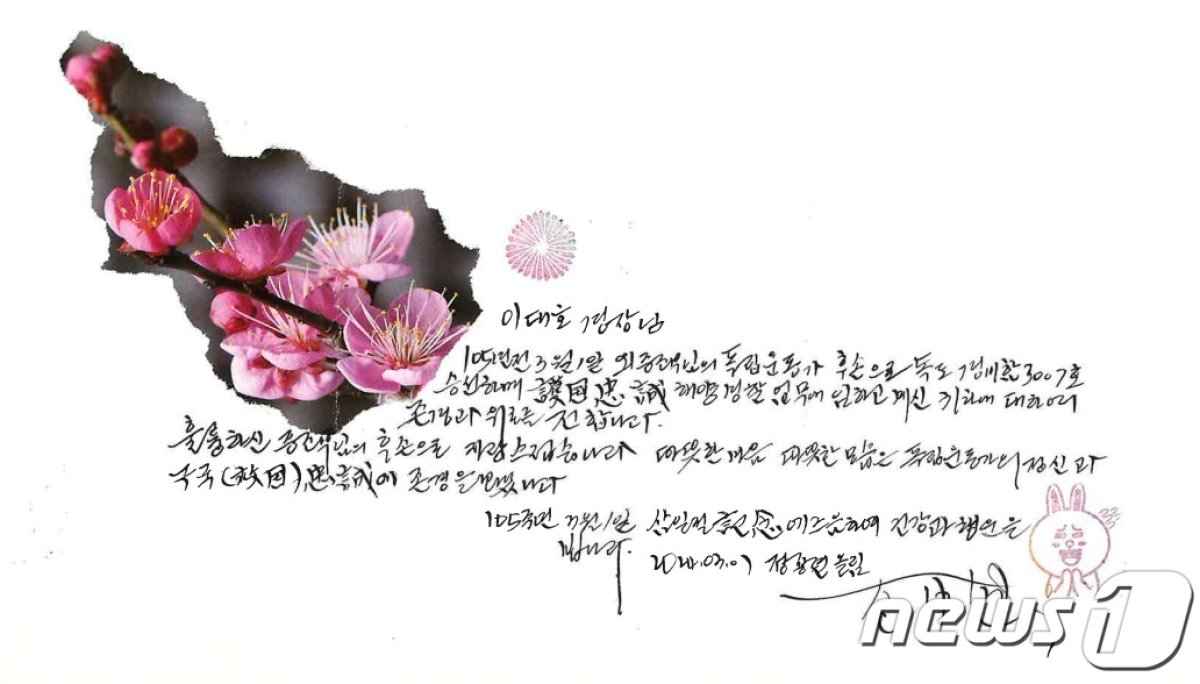 이대호 경장님
105년전 3월1일 외증조부님의 독립운동가 후손으로 독도 경비함 3007호
승선하여 護国忠誠 해양경찰 업무에 임하고 계신 귀하에 대하여
존경과 위로를 전합니다.
훌륭하신 증조부님의 후손으로 자랑스럽습니다 따뜻한 마음 따뜻한 모습은 독립운동가의 정신과
구국(救国)忠誠에 존경을
105주년 3월1일 삼일절 記念에 즈음하여 건강과 행운을
빕니다.
2024.03.01 드림
news1